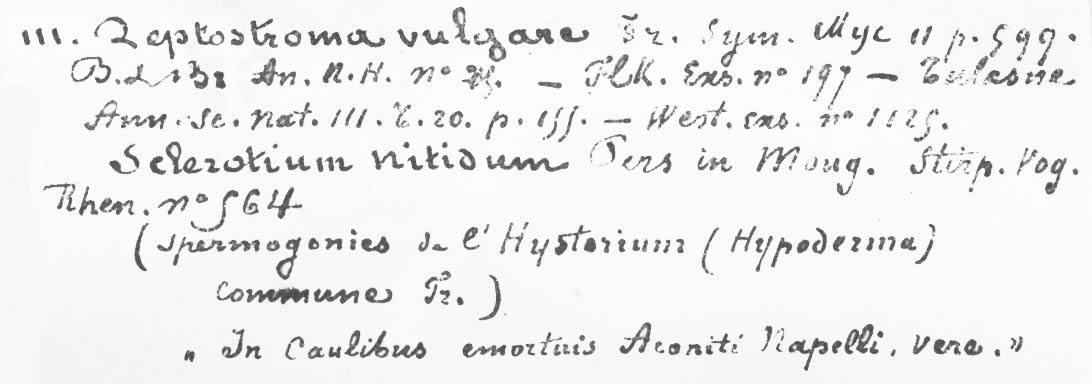 111. Leptostroma vulgare Fr. Sym. Myc 11 p. 599.
B. & Br An. N. H. nº — Flk. Exs. nº 197 — Tulasne
Ann. Sc. Nat. III. T. 20. p. 155. — West. exs. nº 1125.
Sclerotium nitidum Pers in Moug. Stirp. Vog.
Rhen. nº 564
(Spermogonies de l'Hysterium (Hypoderma)
commune Fr.)
„ In Caulibus emortuis Aconiti Napelli. vere.”